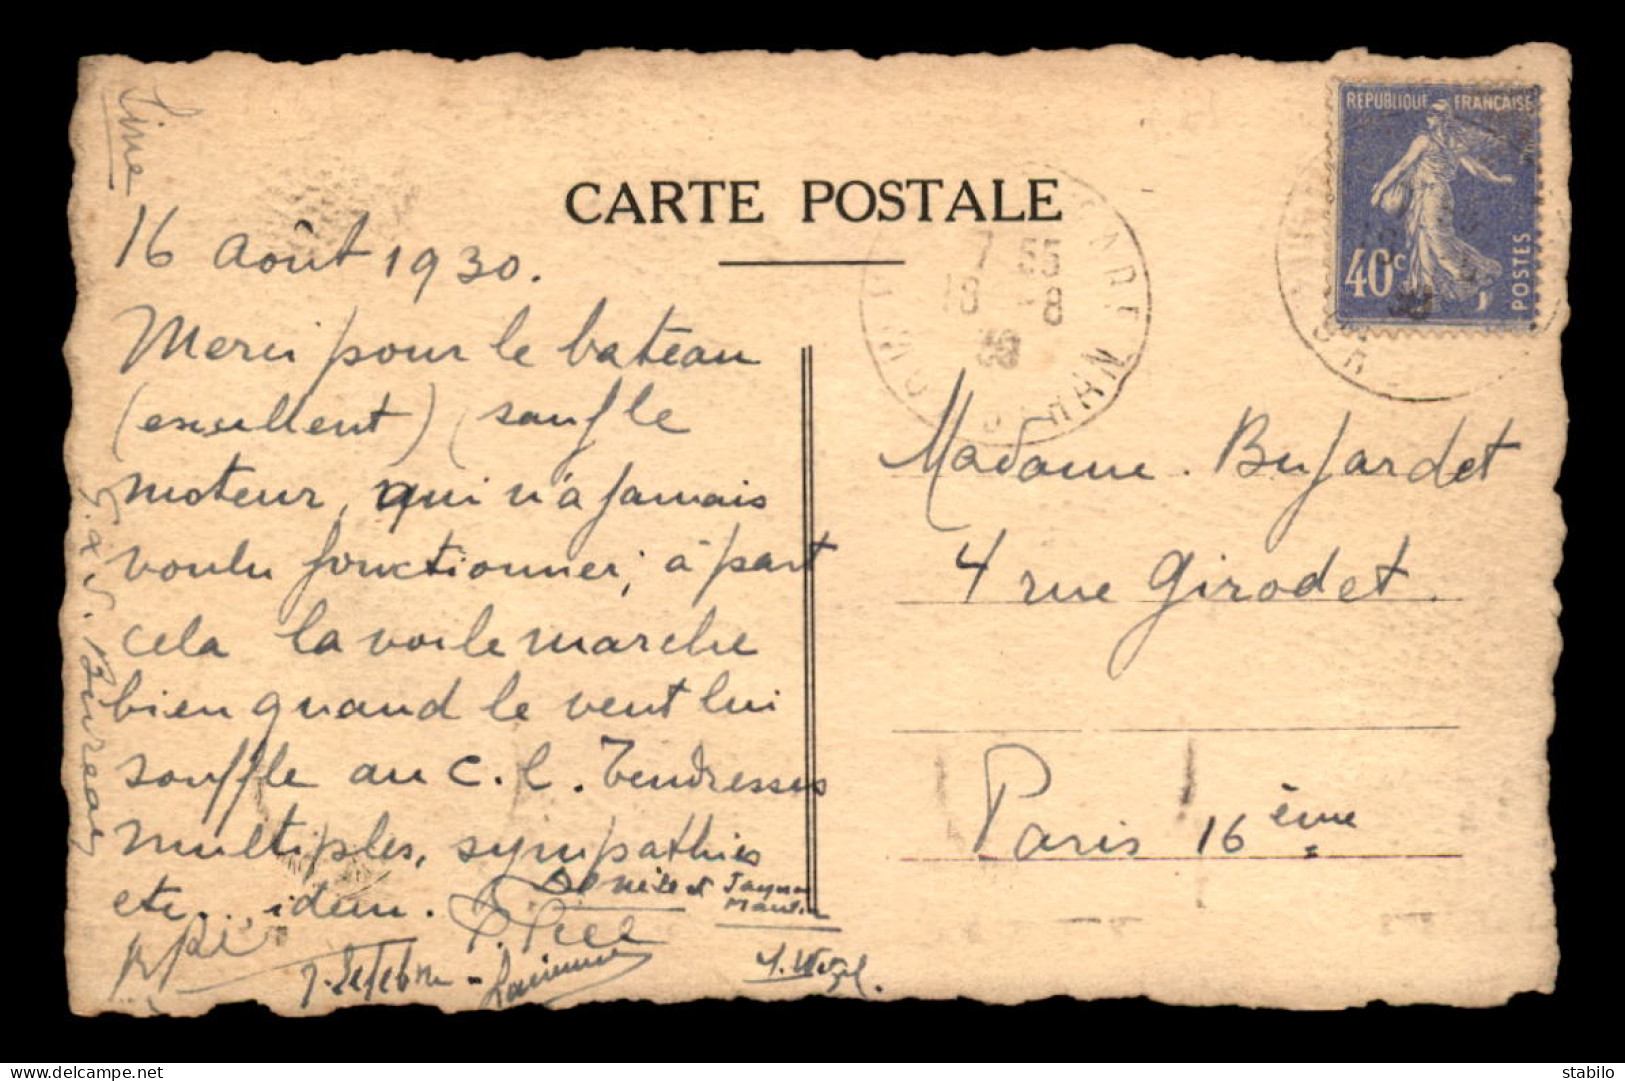 CARTE POSTALE
REPUBLIQUE FRANÇAISE
40c
POSTES
7 55
18 - 8
30
16 Août 1930.
Merci pour le bateau
(excellent) (sauf le
moteur, qui n'a jamais
voulu fonctionner; à part
cela la voile marche
bien quand le vent lui
souffle au c. l. Tendresses
multiples, sympathies
etc.., idem.
J. Lefebvre
G. & J. Bureau
Madame. Bujardet
4 rue Girodet.
Paris 16 ème
delcampe.net
stabilo